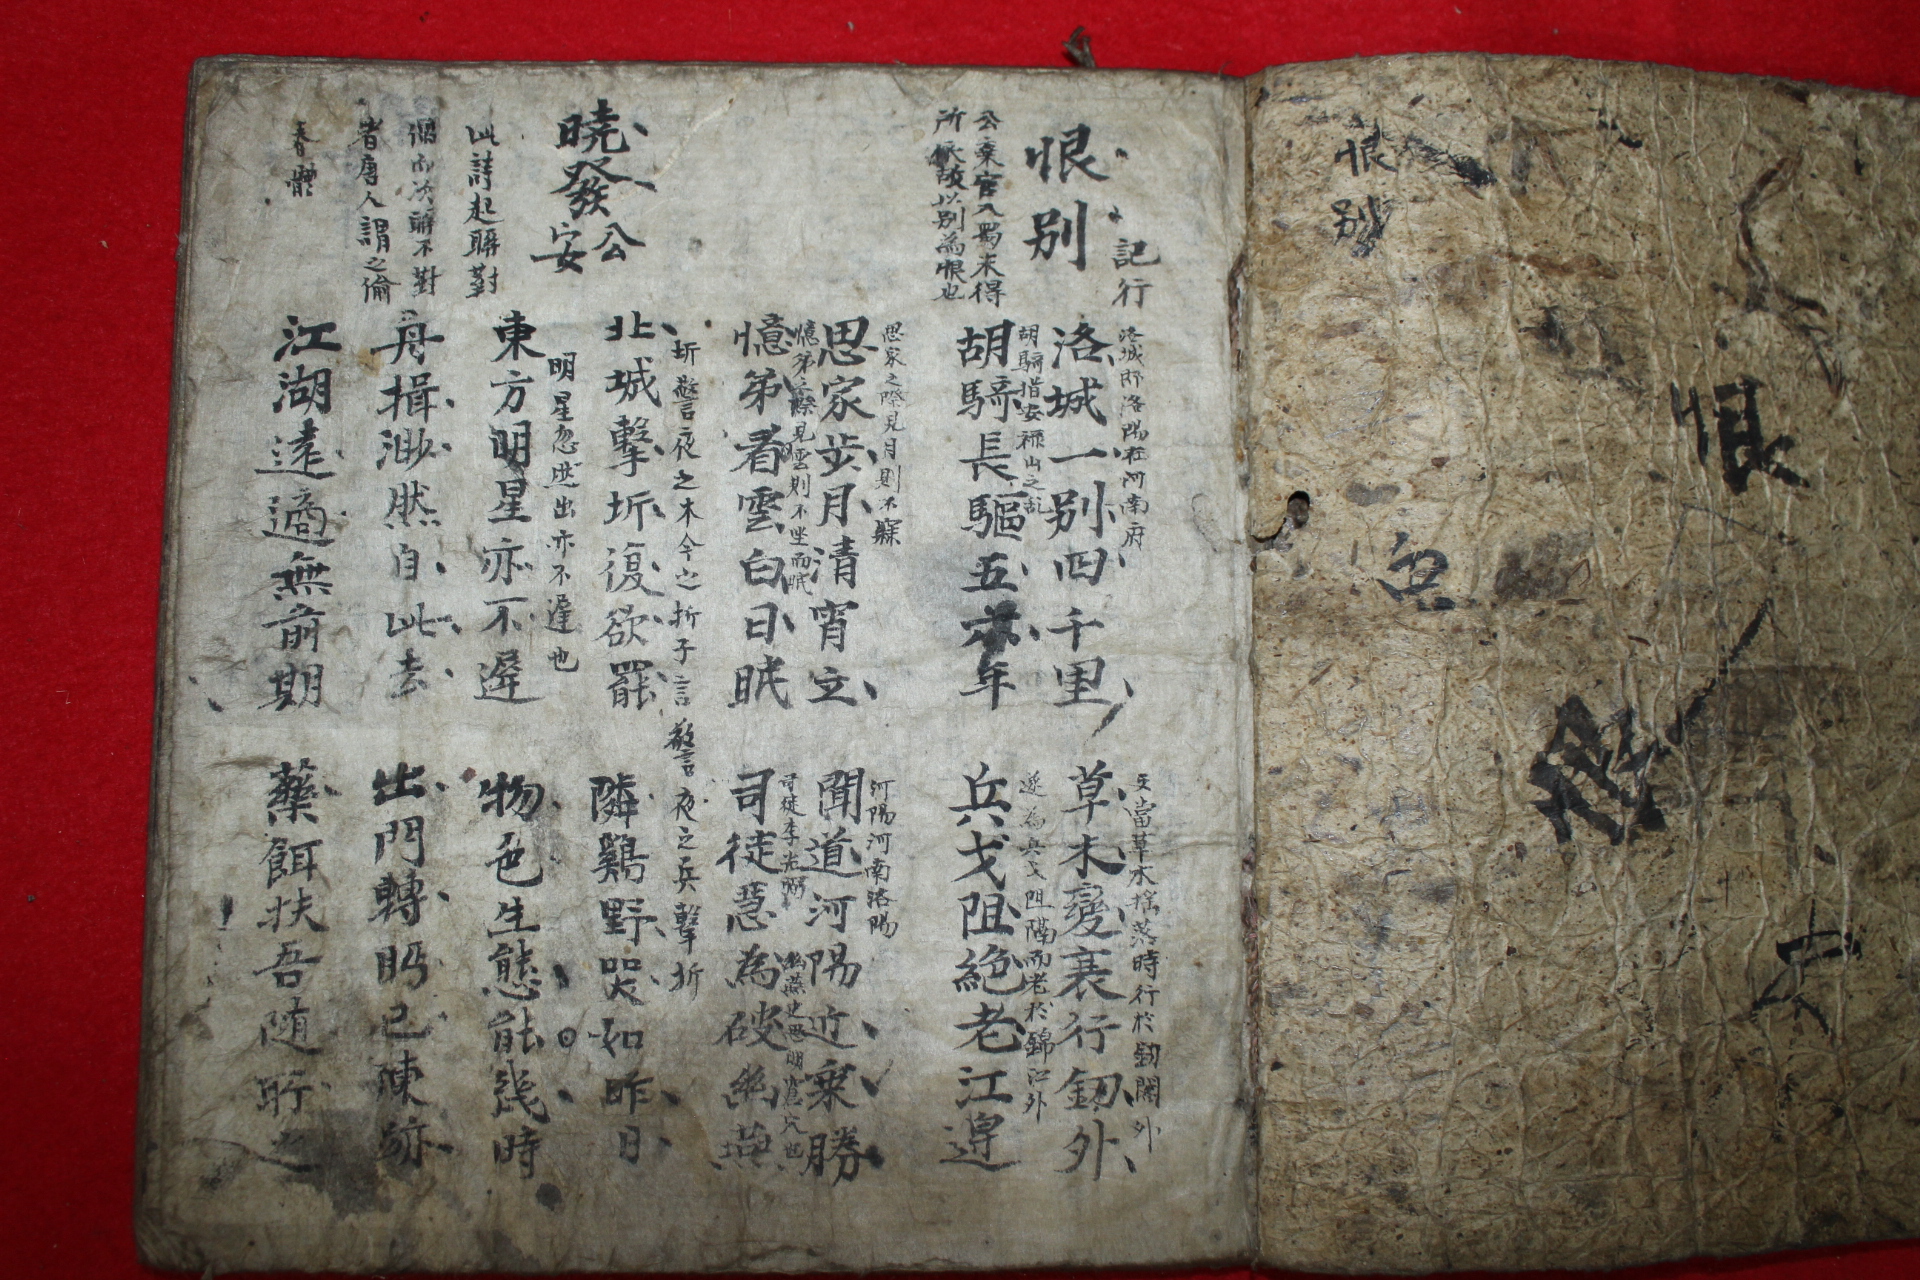 恨
别
恨
記行
恨别
公棄官入蜀未得
所依故以别為恨也
洛城卽洛陽在河南府
洛城一别四千里
胡騎指安祿山之乱
胡騎長驅五六年
又當草木搖落時行於釰閣外
草木變衰行釰外
遂為兵戈阻隔而老於錦江外
兵戈阻絶老江邉
思家之際見月則不寐
思家步月清宵立
憶弟之際見雲則不坐而眠
憶弟看雲白日眠
河陽河南洛陽
聞道河陽近乘勝
司徒李光弼
幽燕史思明窟穴也
司徒急為破幽燕
曉發公安
柝警夜之木今之柝子言警夜之兵擊柝
北城擊柝復欲罷
隣鷄野哭如昨日
明星忽迸出亦不遲也
東方明星亦不遲
物色生態能幾時
此詩起聯對
偶而次聯不對
者唐人謂之偷
春體
舟楫渺然自此去
出門轉眄已陳跡
江湖遠適無前期
藥餌扶吾随所之